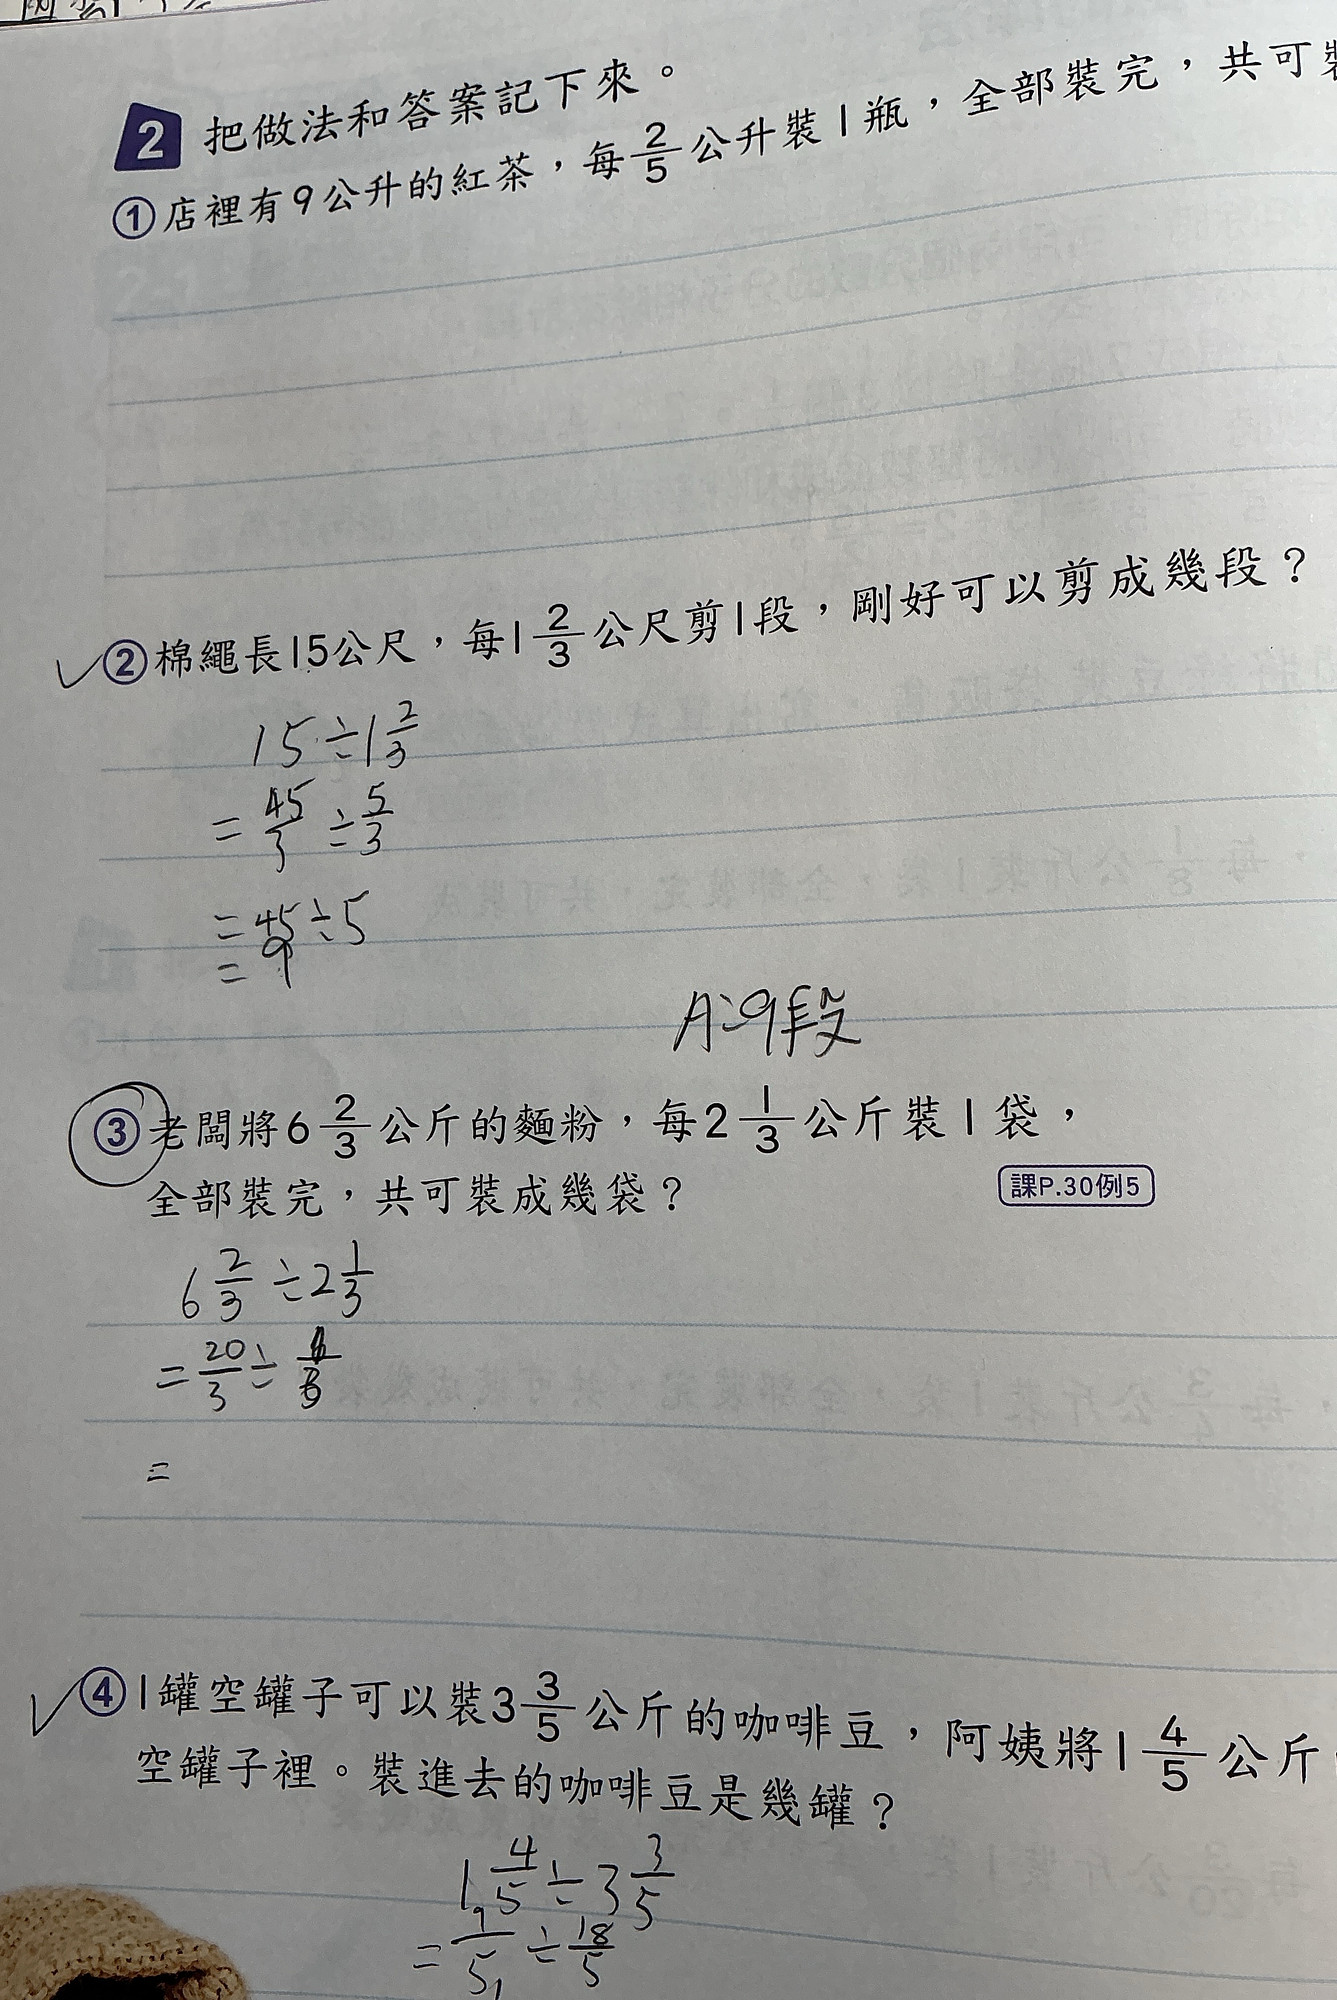 2 把做法和答案記下來。
①店裡有9公升的紅茶，每2/5公升裝1瓶，全部裝完，共可
②棉繩長15公尺，每1 2/3公尺剪1段，剛好可以剪成幾段？
15÷1 2/3
=45/3÷5/3
=45÷5
=9
A:9段
③老闆將6 2/3公斤的麵粉，每2 1/3公斤裝1袋，
全部裝完，共可裝成幾袋？
課P.30例5
6 2/3÷2 1/3
=20/3÷
=
④1罐空罐子可以裝3 3/5公斤的咖啡豆，阿姨將1 4/5公斤
空罐子裡。裝進去的咖啡豆是幾罐？
1 4/5÷3 3/5
=9/5÷18/5